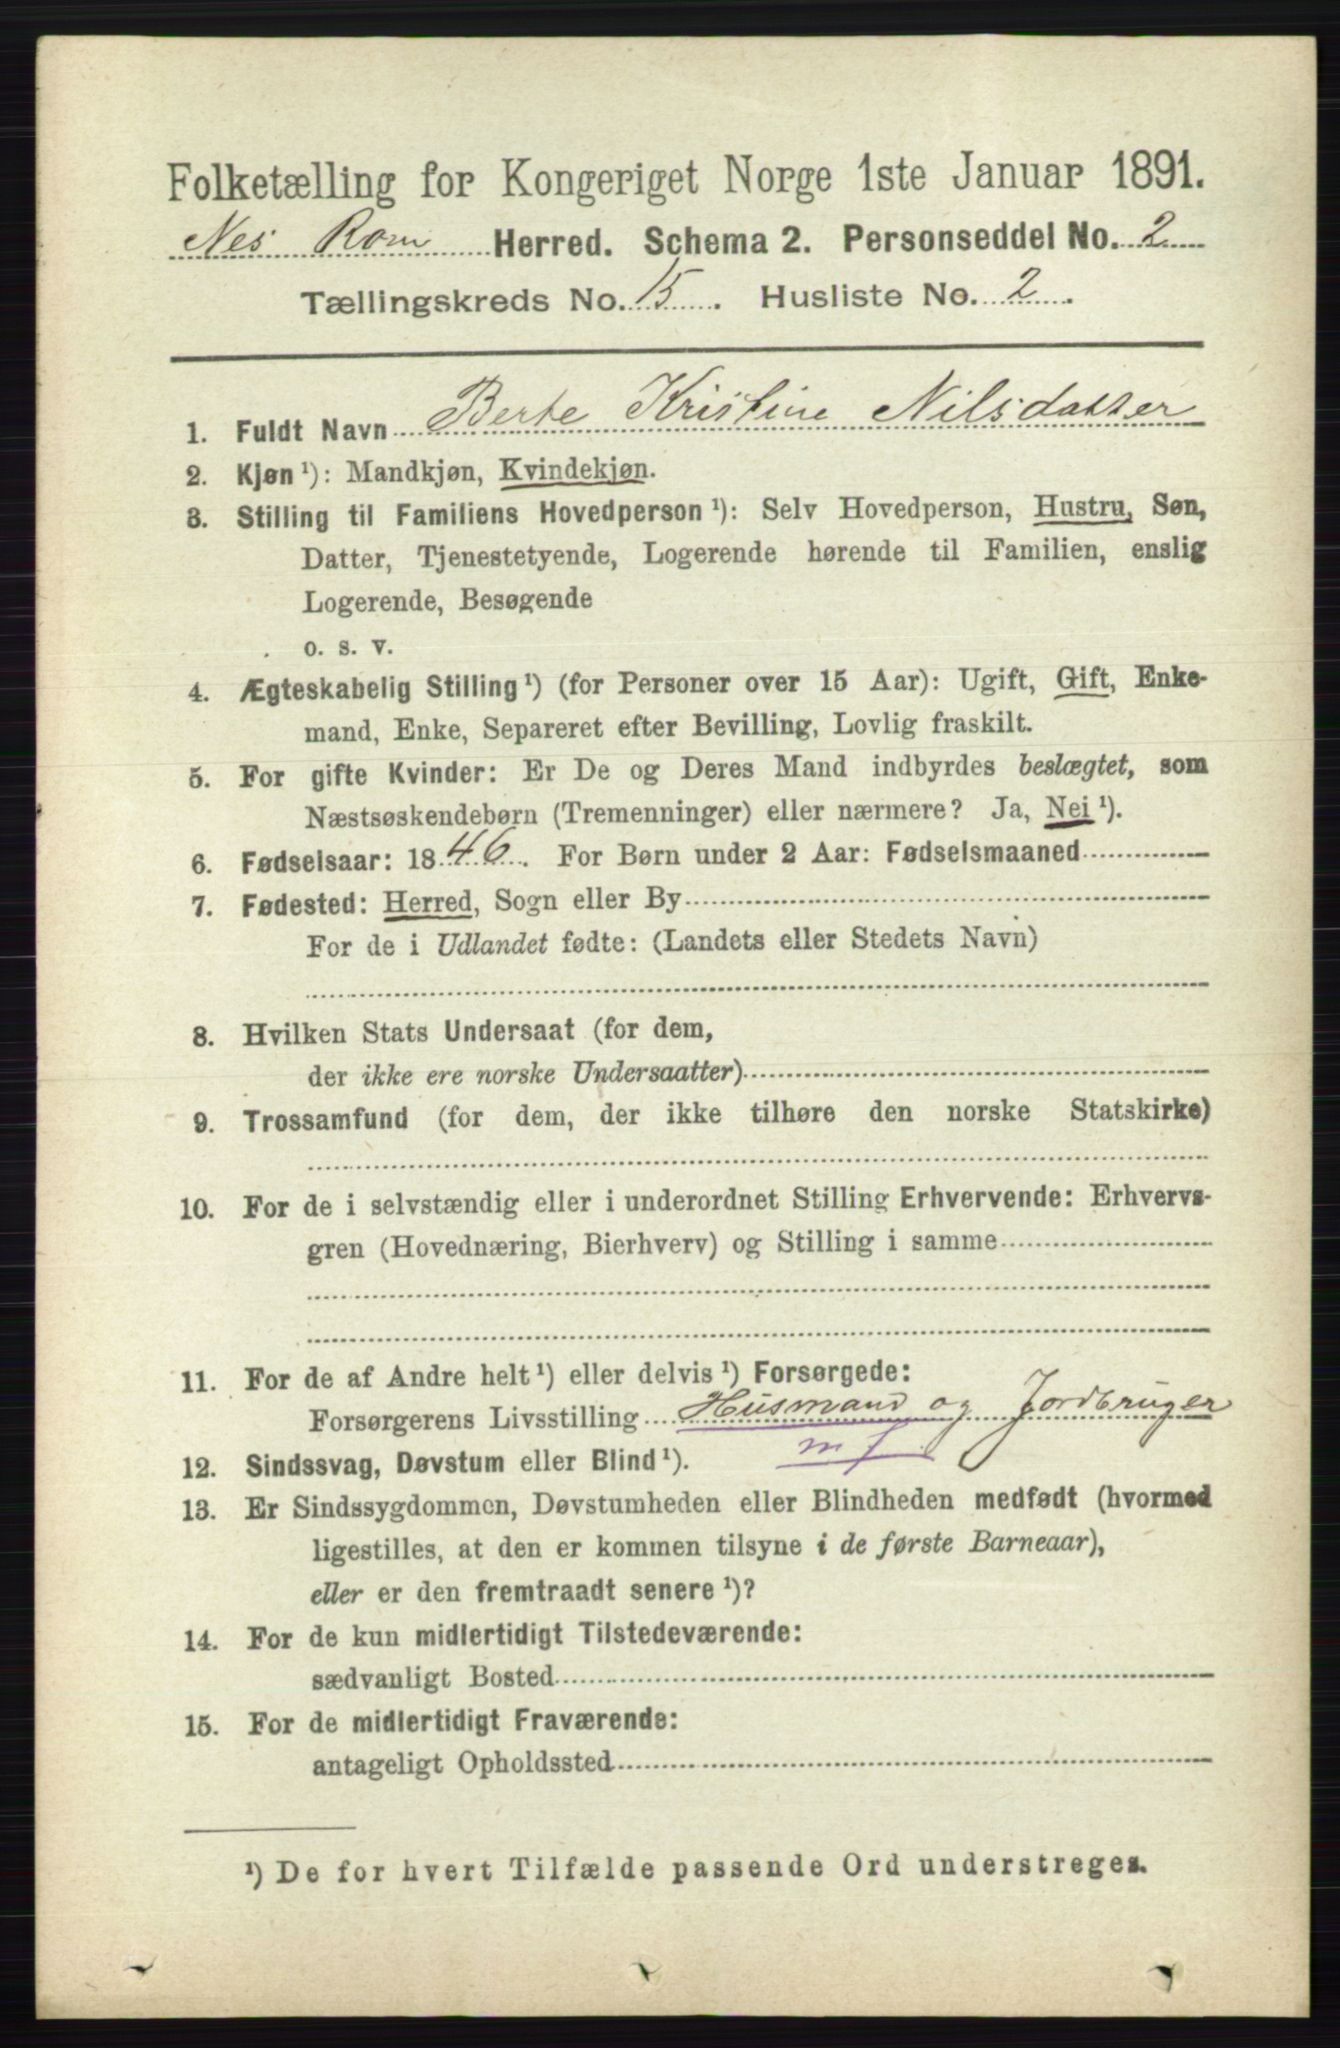 Folketælling for Kongeriget Norge 1ste Januar 1891.
Nes Rom Herred. Schema 2. Personseddel No. 2
Tællingskreds No. 15. Husliste No. 2.
1. Fuldt Navn Berte Kristine Nilsdatter
2. Kjøn ¹): Mandkjøn, Kvindekjøn.
3. Stilling til Familiens Hovedperson ¹): Selv Hovedperson, Hustru, Søn,
Datter, Tjenestetyende, Logerende hørende til Familien, enslig
Logerende, Besøgende
o. s. v.
4. Ægteskabelig Stilling ¹) (for Personer over 15 Aar): Ugift, Gift, Enke-
mand, Enke, Separeret efter Bevilling, Lovlig fraskilt.
5. For gifte Kvinder: Er De og Deres Mand indbyrdes beslægtet, som
Næstsøskendebørn (Tremenninger) eller nærmere? Ja, Nei ¹).
6. Fødselsaar: 1846. For Børn under 2 Aar: Fødselsmaaned
7. Fødested: Herred, Sogn eller By
For de i Udlandet fødte: (Landets eller Stedets Navn)
8. Hvilken Stats Undersaat (for dem,
der ikke ere norske Undersaatter)
9. Trossamfund (for dem, der ikke tilhøre den norske Statskirke)
10. For de i selvstændig eller i underordnet Stilling Erhvervende: Erhvervs-
gren (Hovednæring, Bierhverv) og Stilling i samme
11. For de af Andre helt ¹) eller delvis ¹) Forsørgede:
Forsørgerens Livsstilling Husmand og Jordbruger
m f
12. Sindssvag, Døvstum eller Blind ¹).
13. Er Sindssygdommen, Døvstumheden eller Blindheden medfødt (hvormed
ligestilles, at den er kommen tilsyne i de første Barneaar),
eller er den fremtraadt senere ¹)?
14. For de kun midlertidigt Tilstedeværende:
sædvanligt Bosted
15. For de midlertidigt Fraværende:
antageligt Opholdssted
¹) De for hvert Tilfælde passende Ord understreges.